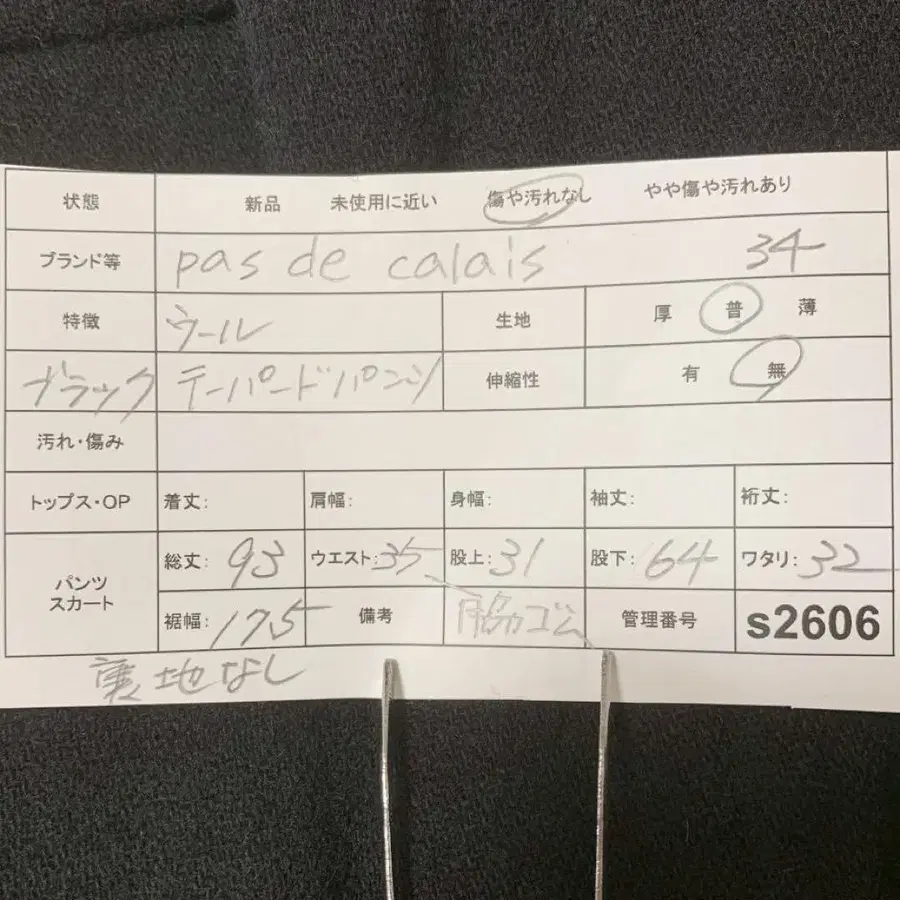 状態 新品 未使用に近い 傷や汚れなし やや傷や汚れあり
ブランド等 pas de calais 34
特徴 ウール 生地 厚 普 薄
ブラック テーパードパンツ 伸縮性 有 無
汚れ・傷み
トップス・OP 着丈: 肩幅: 身幅: 袖丈: 裄丈:
パンツ スカート 総丈: 93 ウエスト: 35 股上: 31 股下: 64 ワタリ: 32
裾幅: 175 備考 脇ゴム 管理番号 s2606
裏地なし